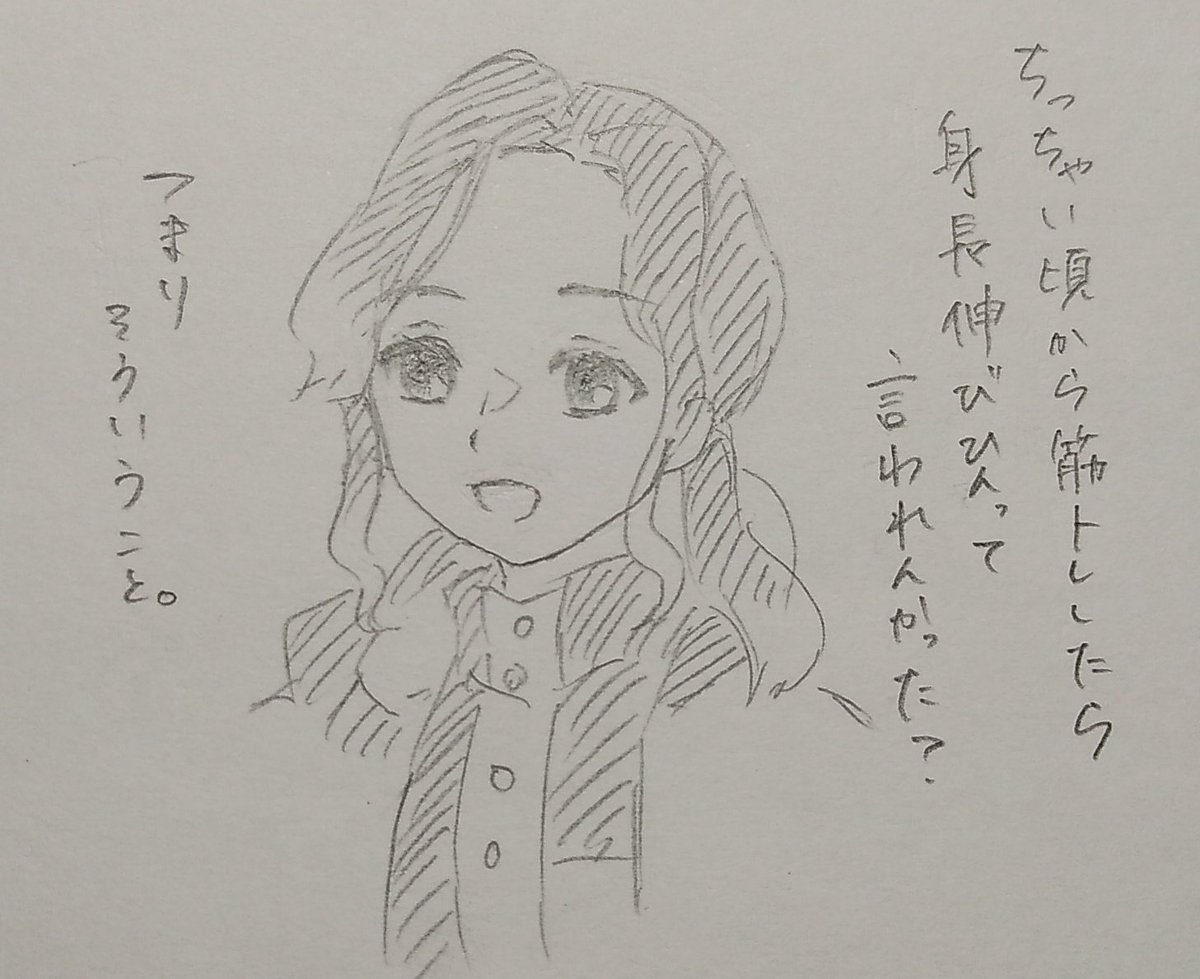 ちっちゃい頃から筋トレしたら
身長伸びひんって
言われんかった?
つまり
そういうこと。